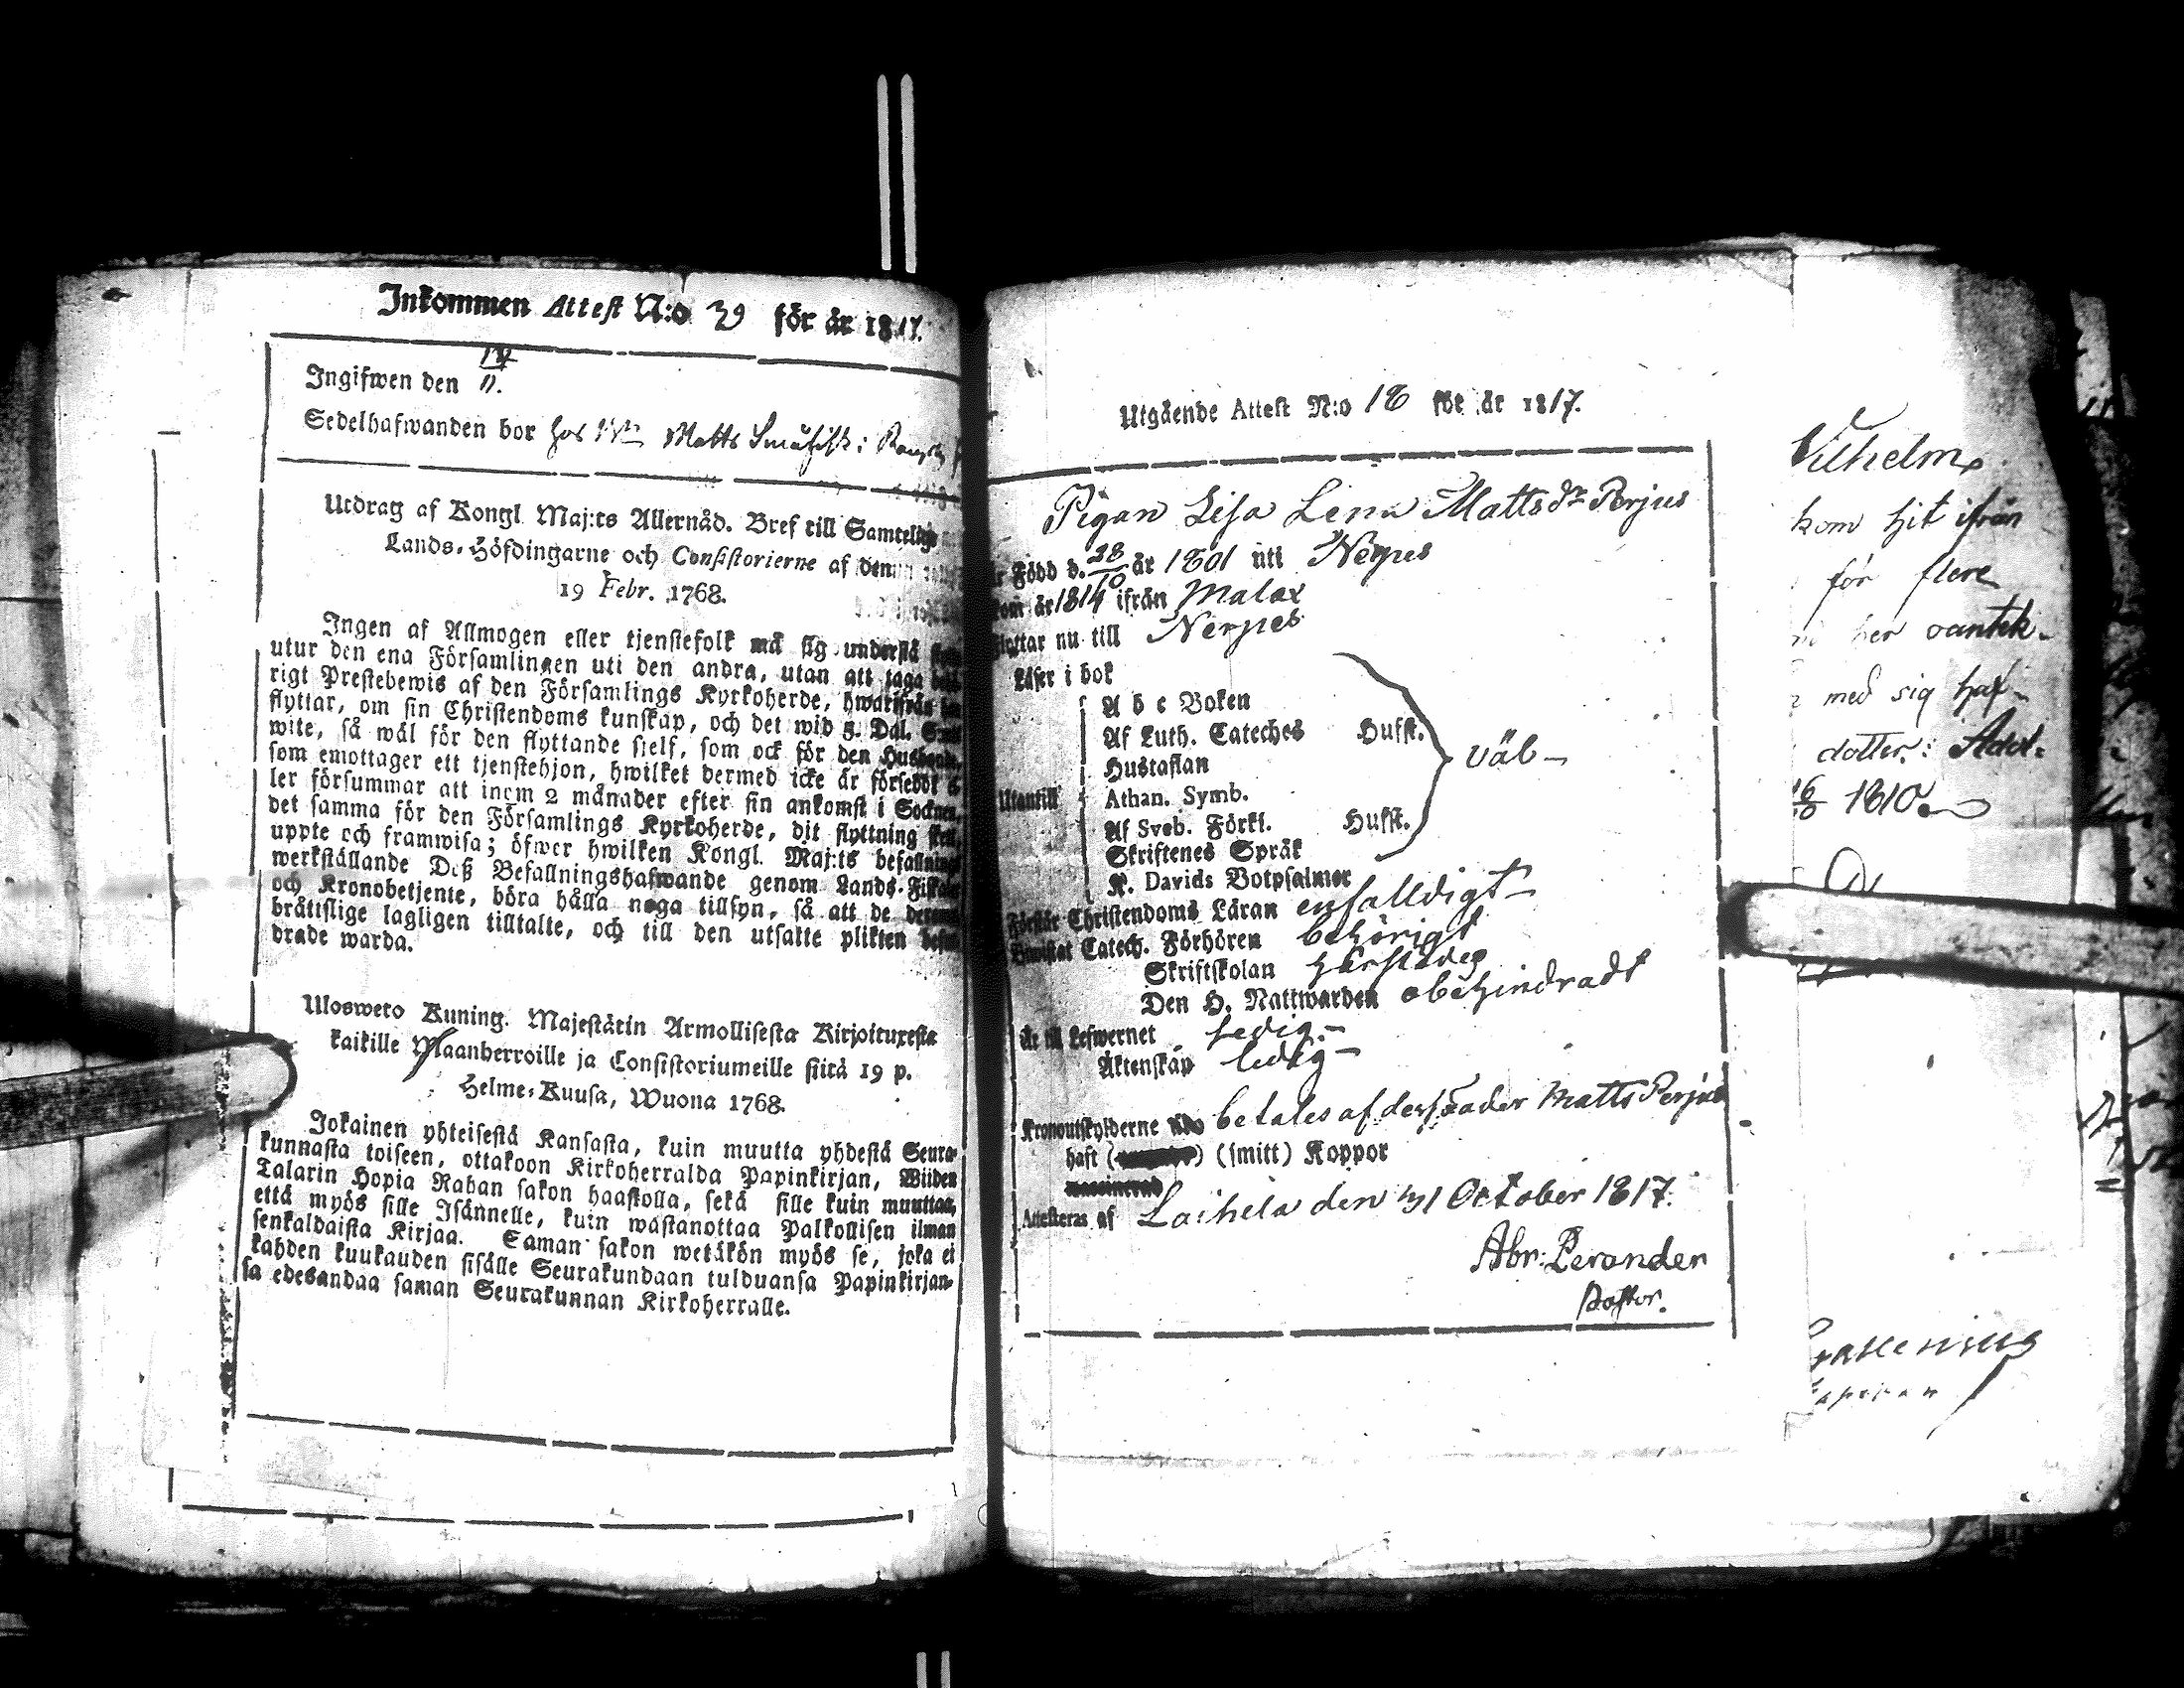 Inkommen Attest N:o 39 för år 1817.
Ingifwen den 11.
Sedelhafwanden bor hos Matts
Utdrag af Kongl. Maj:ts Allernåd. Bref till Samtelige
Lands-Höfdingarne och Consistorierne af den
19 Febr. 1768.
Ingen af Allmogen eller tjenstefolk må sig understå
utur den ena Församlingen uti den andra, utan att taga
rigt Prestebewis af den Församlings Kyrkoherde, hwarifrån
flyttar, om sin Christendoms kunskap, och det wid 5. Dal.
wite, så wäl för den flyttande sielf, som ock för den Husbonde,
som emottager ett tjenstehjon, hwilket dermed icke är försedt
ler försummar att inom 2 månader efter sin ankomst i Socknen,
det samma för den Församlings Kyrkoherde, dit flyttning sker,
uppte och framwisa; öfwer hwilken Kongl. Maj:ts befallnings
werkställande Deß Befallningshafwande genom Lands-Fiskaler
och Kronobetjente, böra hålla noga tillsyn, så att de
bråttslige lagligen tilltalte, och till den utsatte plikten
drade warda.
Uloswero Kuning. Majestätin Armollisesta Kirjoituxesta
kaikille Maanherroille ja Consistoriumeille siitä 19 p.
Helme-Kuusa, Wuona 1768.
Jokainen yhteisestä Kansasta, kuin muutta yhdestä Seura-
kunnasta toiseen, ottakoon Kirkoherralda Papinkirjan, Wiiden
Talarin Hopia Rahan sakon haastolla, sekä sille kuin muuttaa,
että myös sille Isännelle, kuin wastanottaa Palkollisen ilman
senkaldaista Kirjaa. Saman sakon wetäkön myös se, joka ei
kahden kuukauden sisälle Seurakundaan tulduansa Papinkirjan-
sa edesandaa saman Seurakunnan Kirkoherralle.
Utgående Attest N:o 18 för år 1817.
Pigan Lisa Lena Mattsdr Perjus
är Född d. 28/10 år 1801 uti Nerpes
kom år 1814 ifrån Malax
flyttar nu till Nerpes
Läser i bok
A b c Boken
Af Luth. Cateches Hufst.
Hustaflan
Utantill Athan. Symb.
Af Sveb. Förkl. Hufst.
Skriftenes Språk
K. Davids Botpsalmer
väl
Förstår Christendoms Läran enfalldigt
Biwistat Catech. Förhören behörigt
Skriftskolan härstädes
Den H. Nattwarden obehindradt
Är till Lefwernet ledig
Äktenskap ledig
Kronoutskylderne betales af dess fader Matts Perjus
haft (smitt) Koppor
Attesteras af Laihela den 31 October 1817.
Abr: Perander
Pastor.
Vilhelm
kom hit ifrån
för flere
her
med sig haf-
dotter:
1810